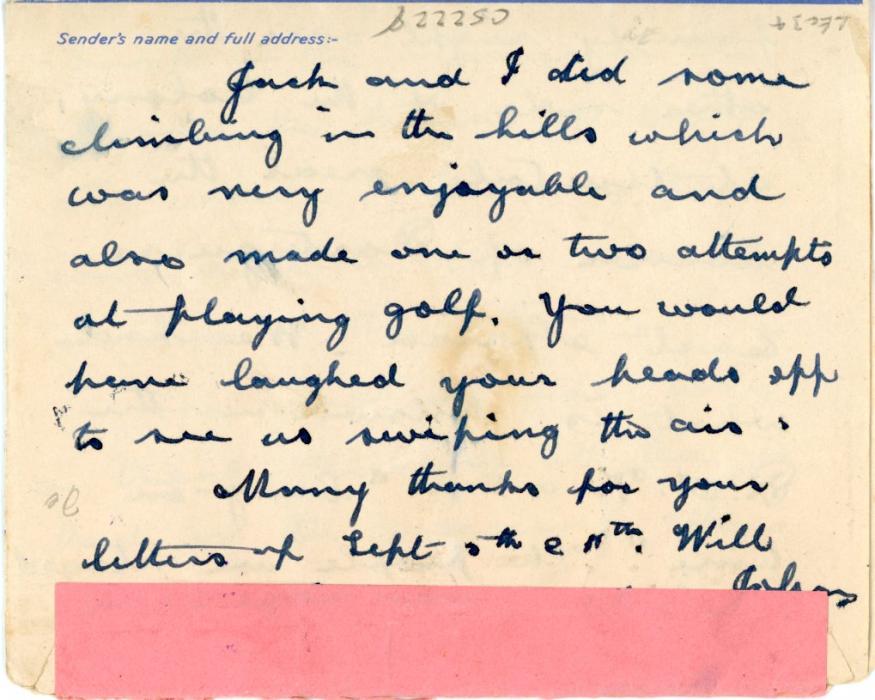 Sender's name and full address:-
Jack and I did some
climbing in the hills which
was very enjoyable and
also made one or two attempts
at playing golf. You would
have laughed your heads off
to see us swiping the air.
Many thanks for your
letters of Sept 5th & 11th. Will